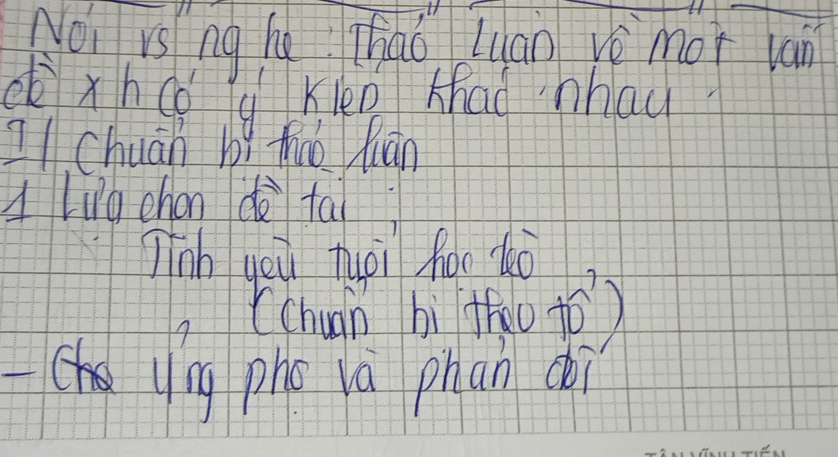 Nói và nghe: Thảo luận về một vấn
đề xh có ý kiến khác nhau.
I/ Chuẩn bị thảo luận
1 Lựa chọn đề tài:
Tình yêu tuổi học trò
(Chuẩn bị theo tổ)
- Ủng hộ và phản đối
TÂN VĨNH TIẾN